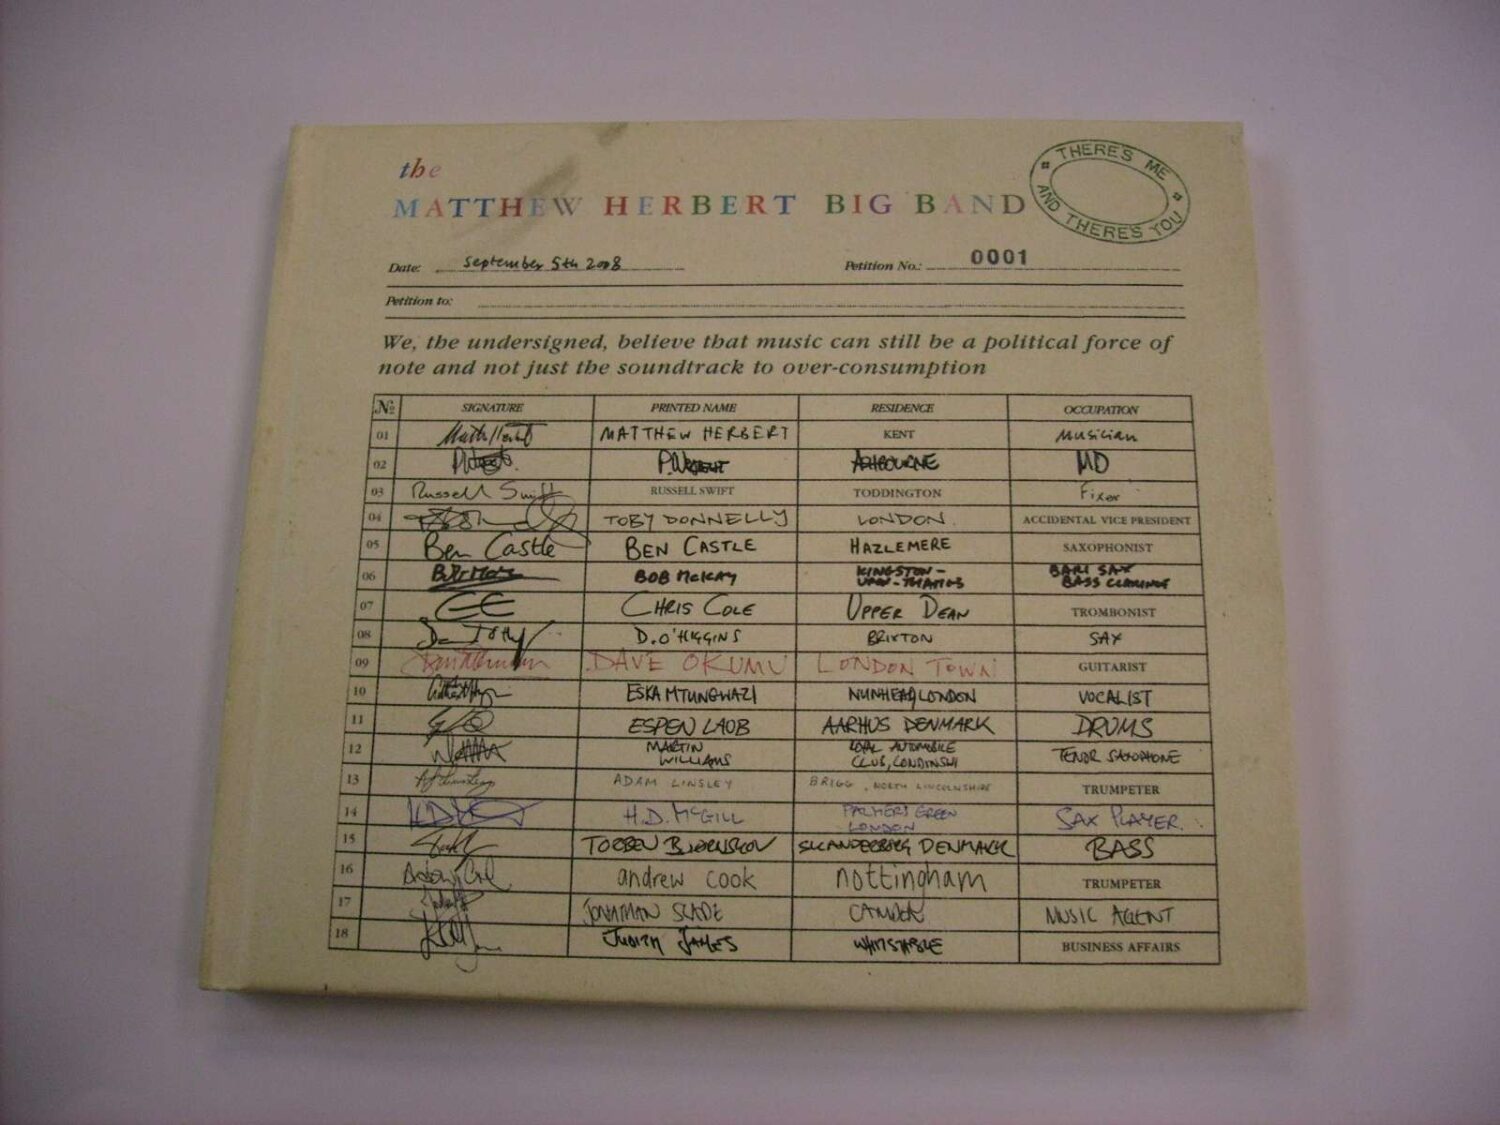 the
MATTHEW HERBERT BIG BAND
THERE'S ME
AND THERE'S YOU
Date: September 5th 2008 Petition No.: 0001
Petition to:
We, the undersigned, believe that music can still be a political force of
note and not just the soundtrack to over-consumption
№ SIGNATURE PRINTED NAME RESIDENCE OCCUPATION
01 MATTHEW HERBERT KENT musician
02 P. WRIGHT ASHBOURNE MD
03 Russell Swift RUSSELL SWIFT TODDINGTON Fixer
04 TOBY DONNELLY LONDON. ACCIDENTAL VICE PRESIDENT
05 Ben Castle BEN CASTLE HAZLEMERE SAXOPHONIST
06 BOB McKAY KINGSTON-UPON-THAMES BARI SAX BASS CLARINET
07 CHRIS COLE UPPER DEAN TROMBONIST
08 D. O'HIGGINS BRIXTON SAX
09 DAVE OKUMU LONDON TOWN GUITARIST
10 ESKA MTUNGWAZI NUNHEAD, LONDON VOCALIST
11 ESPEN LAUB AARHUS DENMARK DRUMS
12 MARTIN WILLIAMS AUTOMOBILE CLUB, TENOR SAXOPHONE
13 ADAM LINSLEY BRIGG, NORTH LINCOLNSHIRE TRUMPETER
14 H.D. McGILL PALMERS GREEN LONDON SAX PLAYER.
15 TORBEN BJØRNSKOV SKANDERBORG DENMARK BASS
16 andrew cook nottingham TRUMPETER
17 JONATHAN SLADE CAMDEN MUSIC AGENT
18 JUDITH JAMES WHITSTABLE BUSINESS AFFAIRS